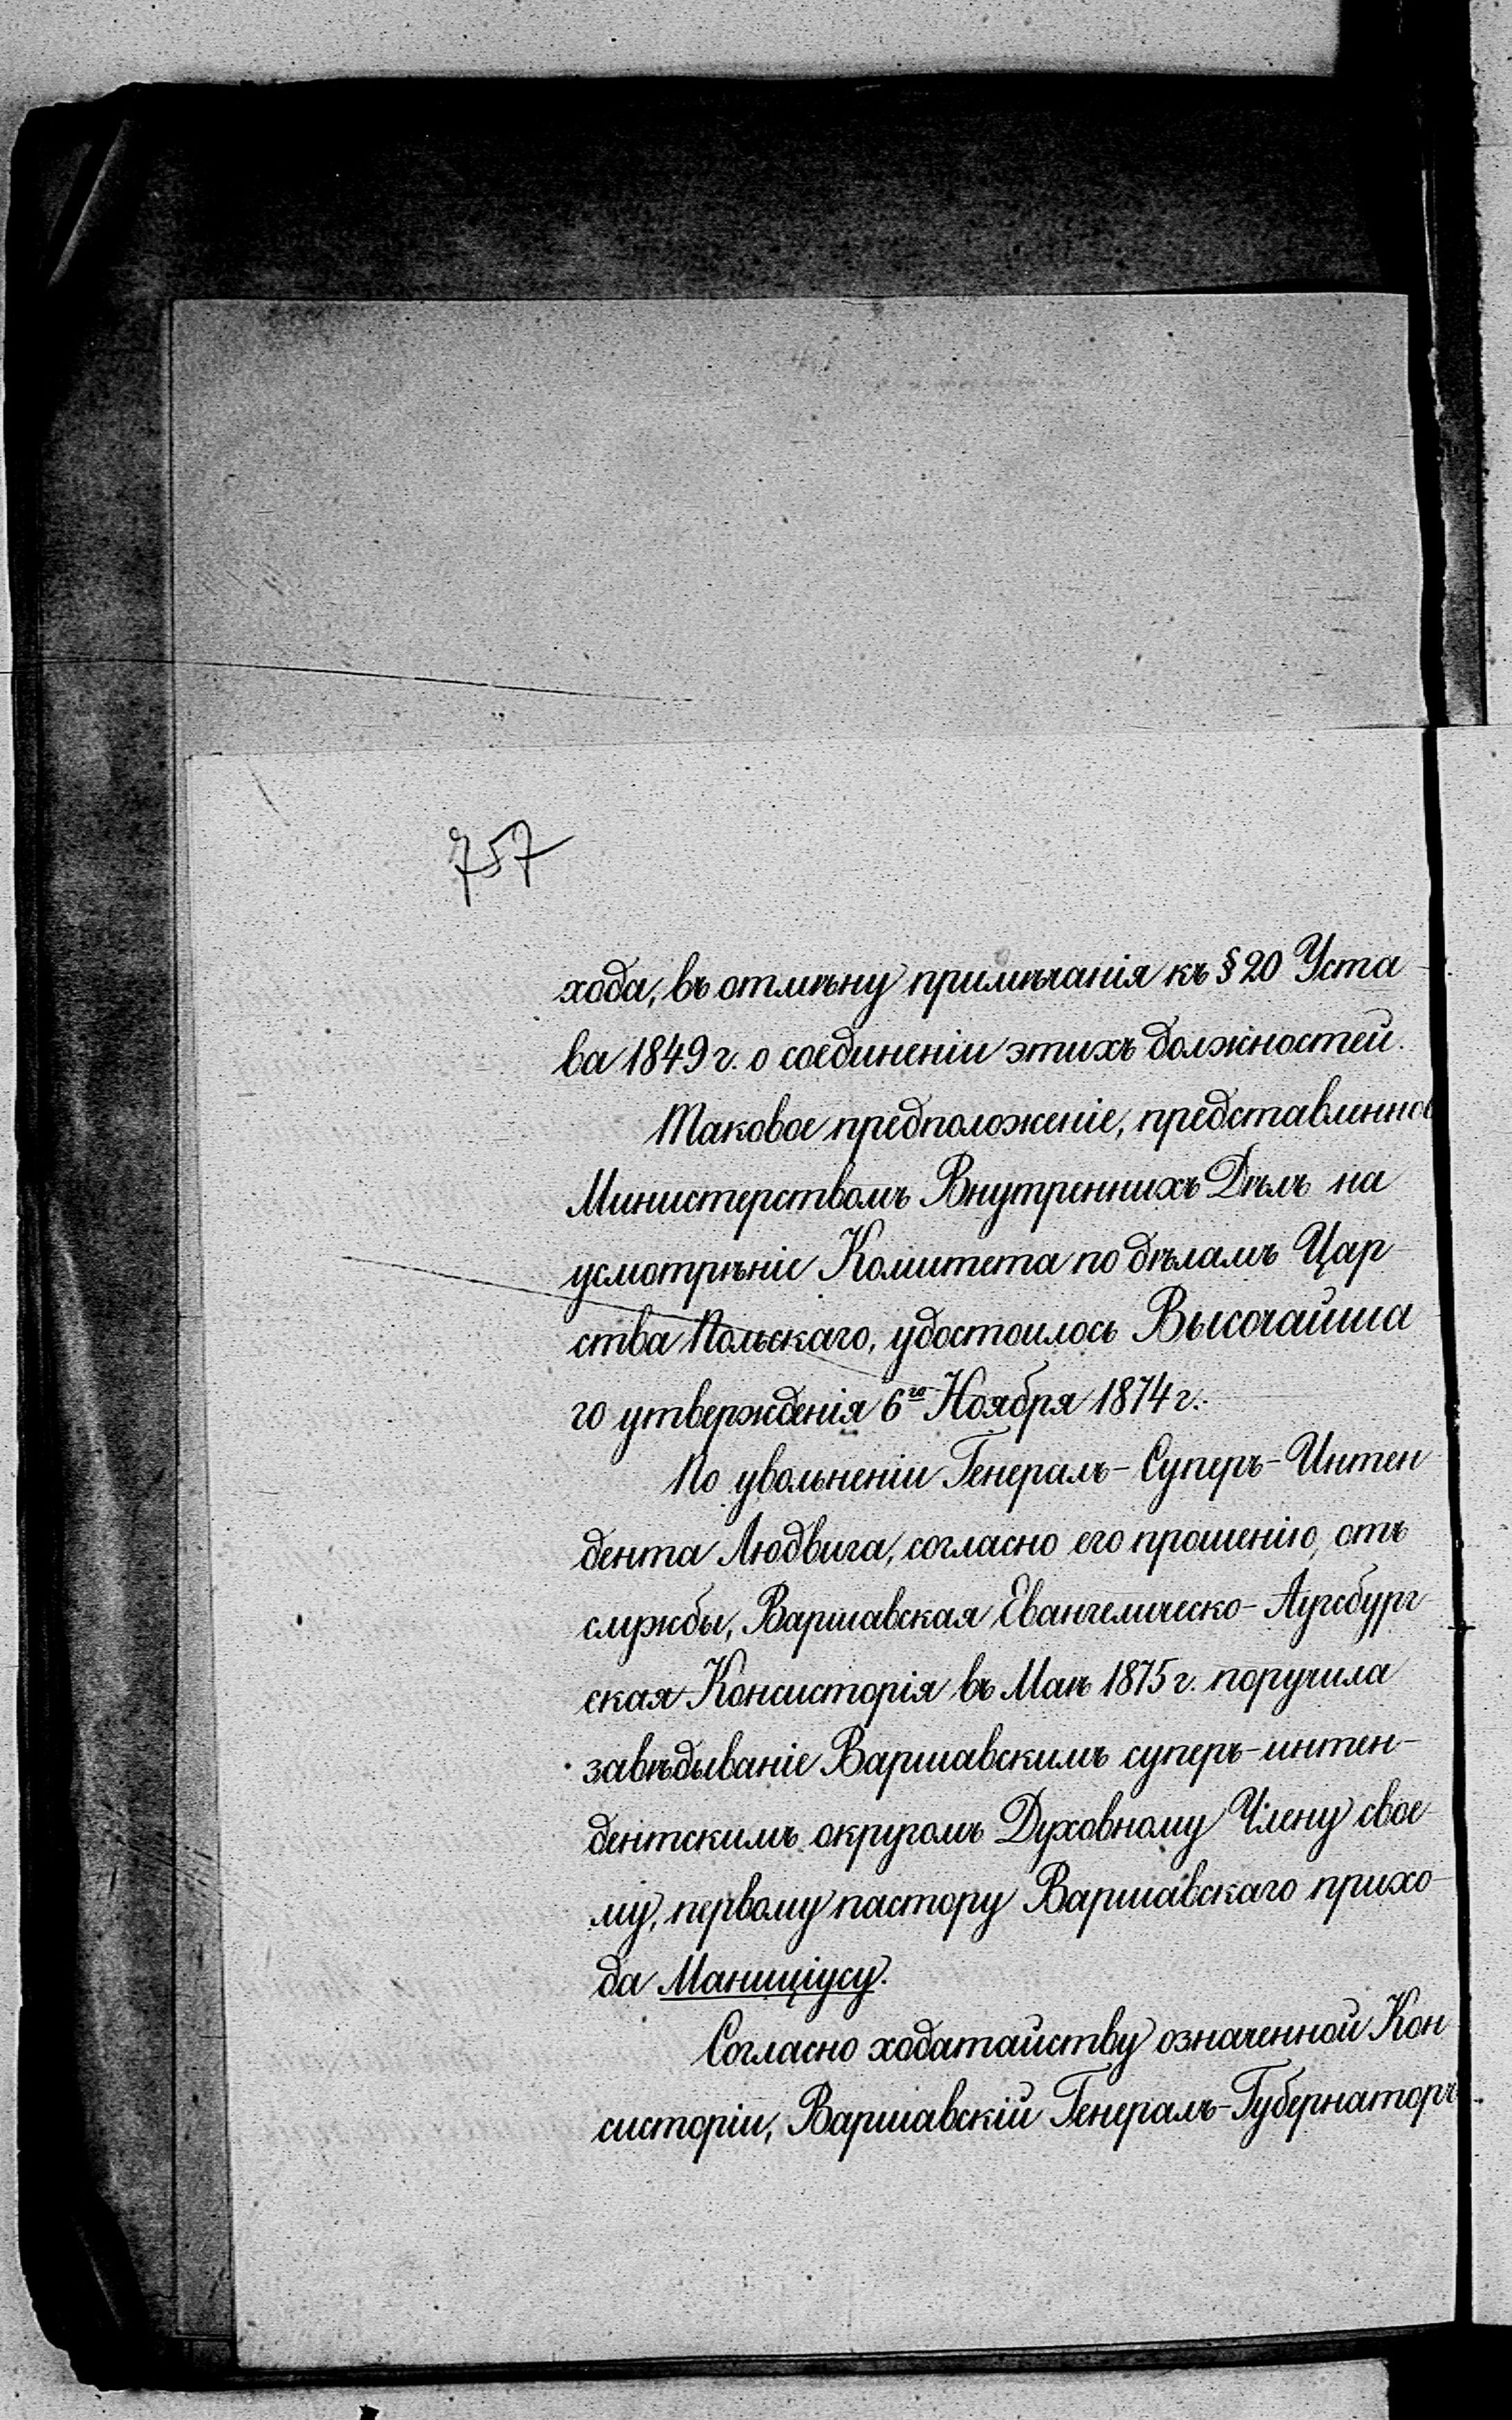 757
хода, въ отмѣну примѣчанія къ § 20 Уста
ва 1849 г. о соединеніи этихъ должностей.
Таковое предположеніе, представленное
Министерствомъ Внутреннихъ Дѣлъ на
усмотрѣніе Комитета по дѣламъ Цар
ства Польскаго, удостоилось Высочайша
го утвержденія 6го Ноября 1874 г.
По увольненіи Генералъ-Суперъ-Интен
дента Людвига, согласно его прошенію, отъ
службы, Варшавская Евангелическо-Аугсбург
ская Консисторія въ Маѣ 1875 г. поручила
завѣдываніе Варшавскимъ суперъ-интен-
дентскимъ округомъ Духовному Члену свое
му, первому пастору Варшавскаго прихо
да Маницiусу.
Согласно ходатайству означенной Кон
систоріи, Варшавскій Генералъ-Губернаторъ